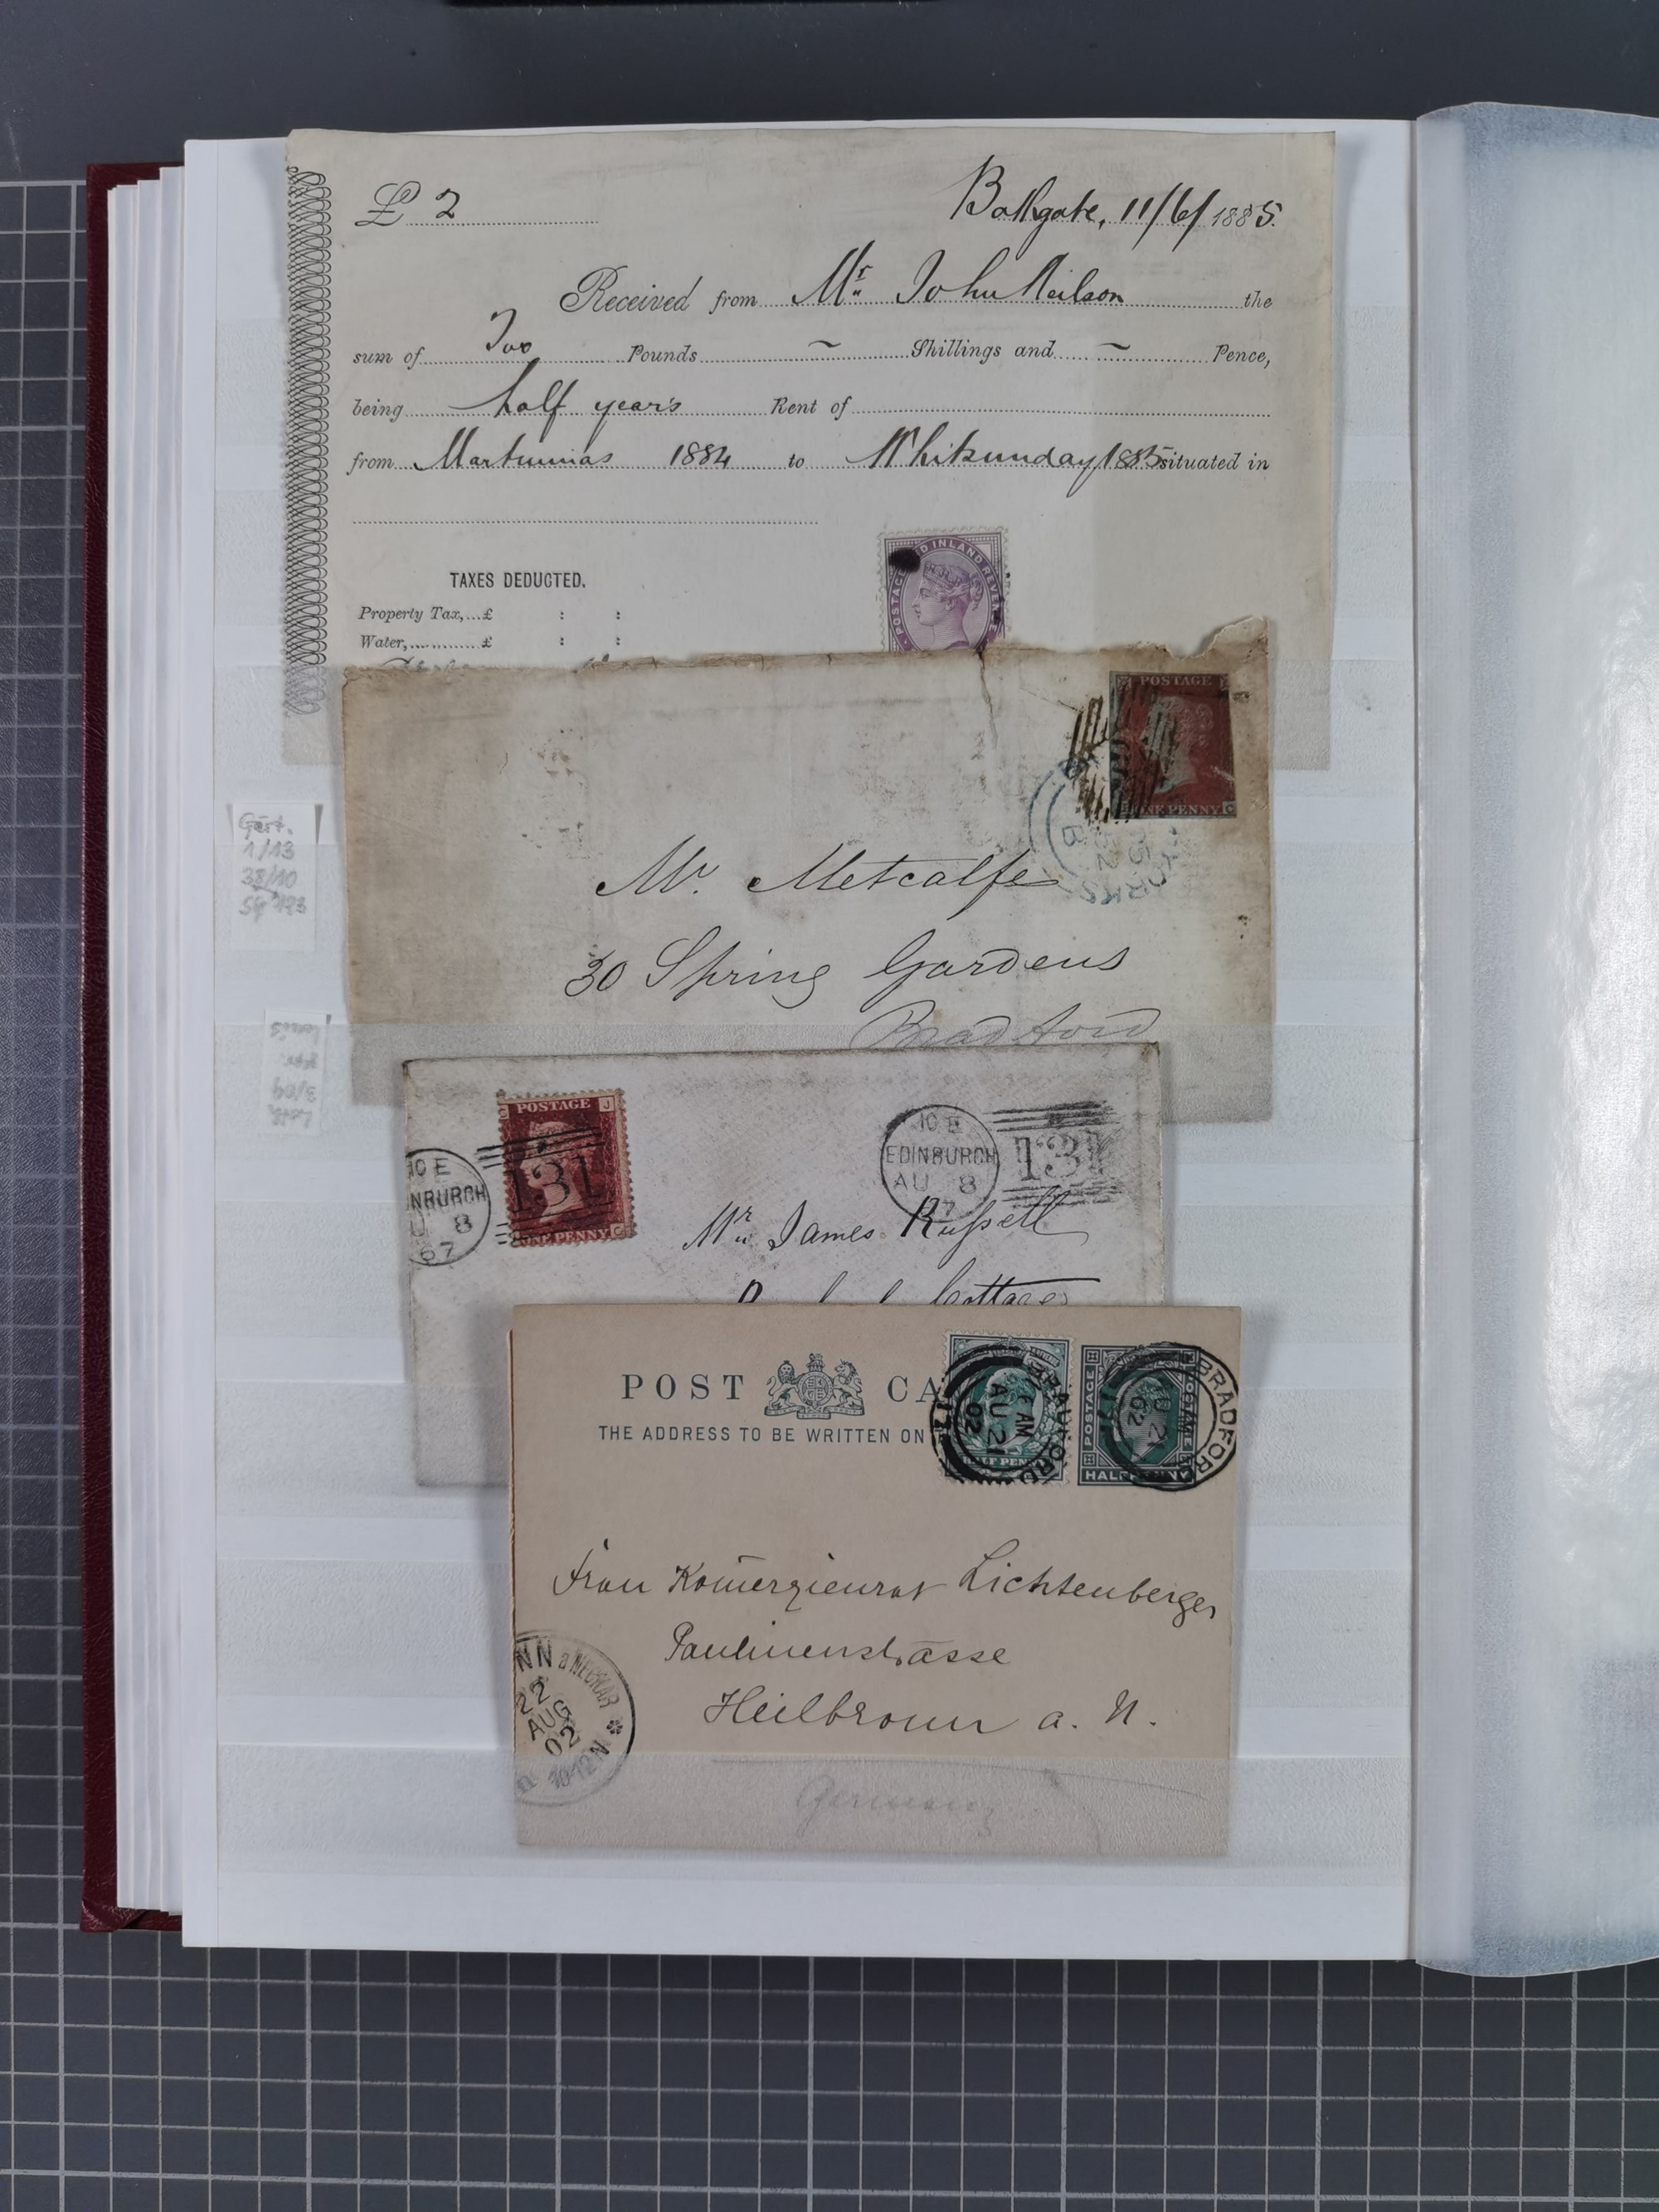 £ 2
Bathgate, 11/6/1885.
Received from Mr John Neilson the
sum of Two Pounds ~ Shillings and ~ Pence,
being half year's Rent of
from Martinmas 1884 to Whitsunday 1885 situated in
TAXES DEDUCTED.
Property Tax,...£ : :
Water,.........£ : :
POSTAGE AND INLAND REVENUE
POSTAGE
ONE PENNY C
Mr. Metcalfe
30 Spring Gardens
Bradford
Gärt.
1/13
38/10
SG 193
3/09
POSTAGE J
131
ONE PENNY C
10 E
NBURGH
U 8
67
10 E
EDINBURGH
AU 8
7
131
Mr James Russell
Cottage
POST CA
THE ADDRESS TO BE WRITTEN ON
HALF PEN
BRADFORD
6 AM
AU 21
02
POSTAGE
HALFPENNY
BRADFOR
AU 21
02
Frau Kom̄erzienrat Lichtenberger
Paulinenstrasse
Heilbronn a. N.
Germany
NN a NECKAR
22
AUG
02
10-12 N